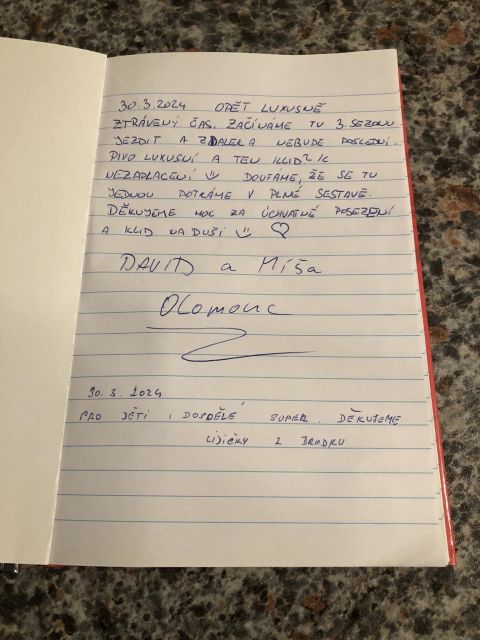 30.3.2024 OPĚT LUXUSNĚ
ZTRÁVENÝ ČAS. ZAČÍNÁME TU 3. SEZONU
JEZDIT A ZDALEKA NEBUDE POSLEDNÍ.
PIVO LUXUSNÍ A TEN KLID? JE
NEZAPLACENÍ DOUFÁME, ŽE SE TU
JEDNOU POTKÁME V PLNÉ SESTAVĚ.
DĚKUJEME MOC ZA ÚCHVATNÉ POSEZENÍ
A KLID NA DUŠI
DAVID a Míša
OLomouc
30.3.2024
PRO DĚTI I DOSPĚLÉ SUPER. DĚKUJEME
LIŠIČKY Z BRODKU